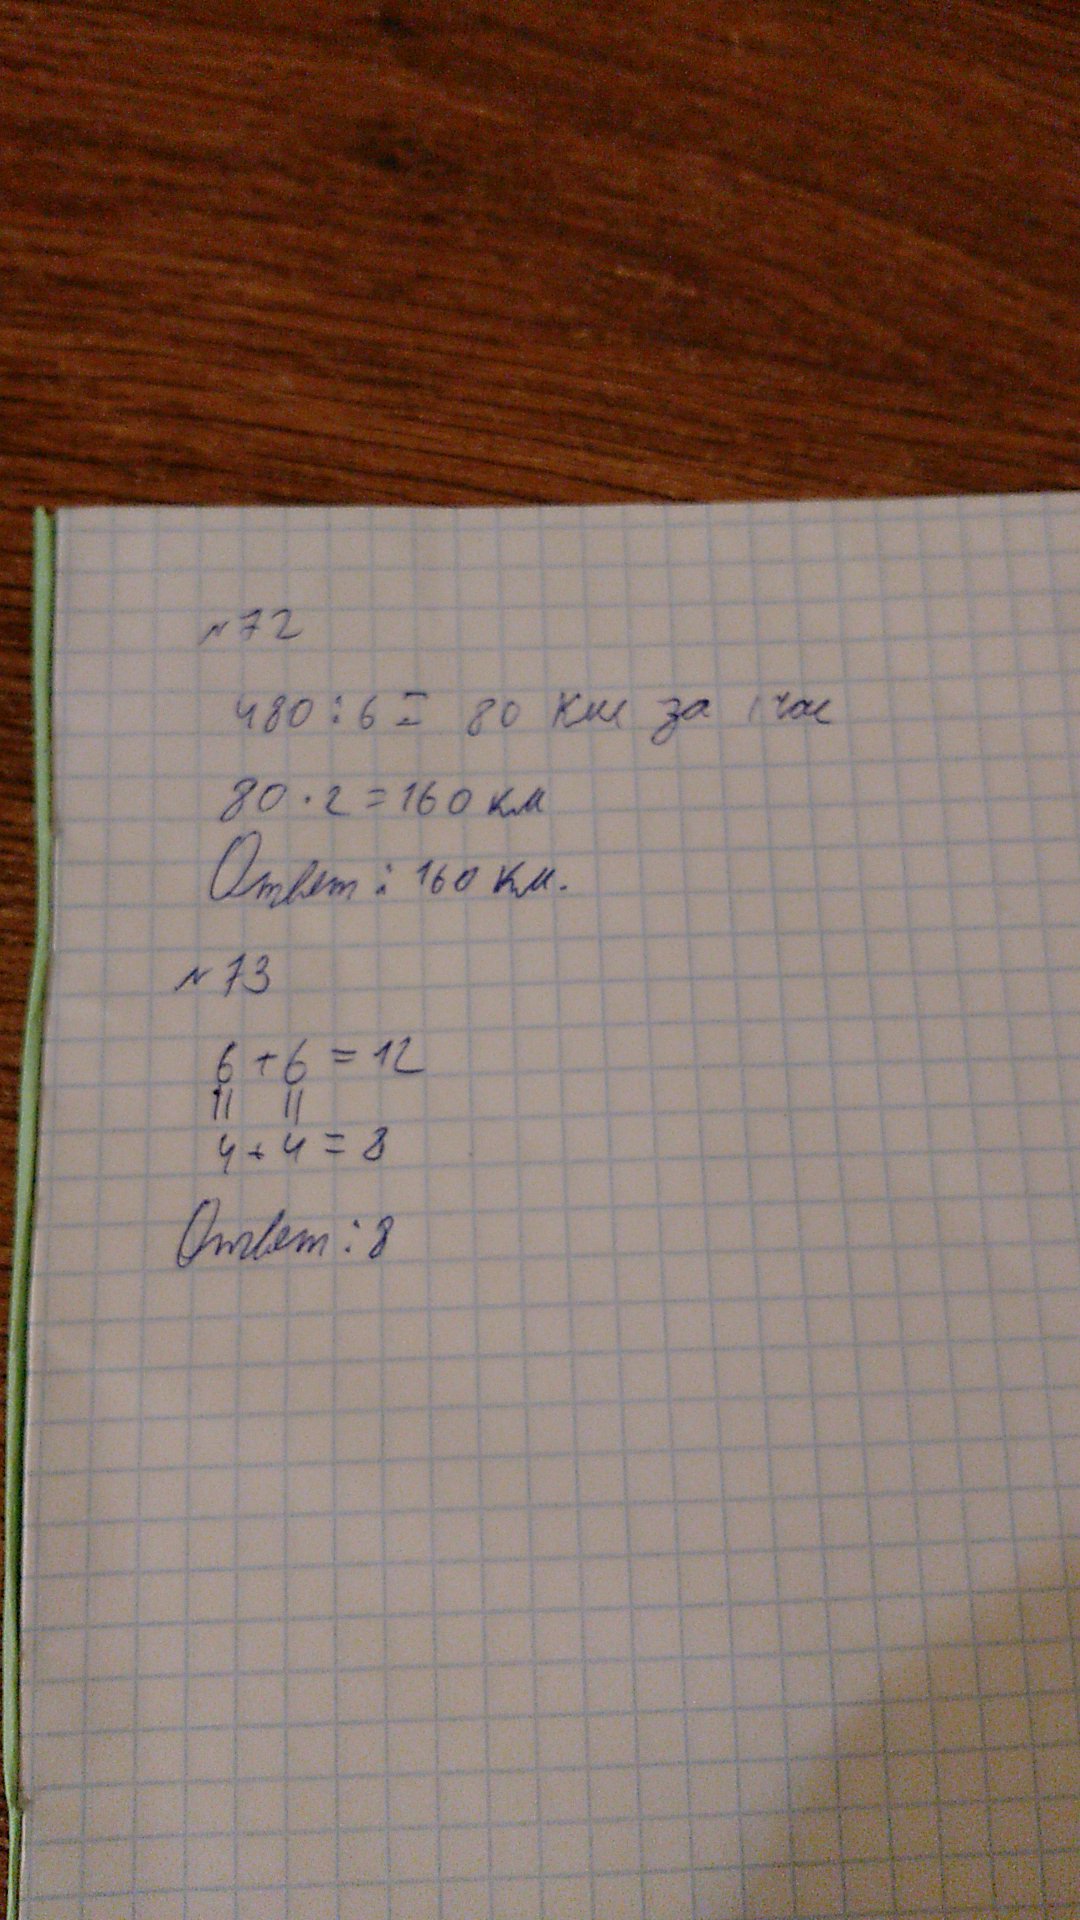 №72
480:6= 80 км за 1 час
80·2=160 км
Ответ: 160 км.
№73
6+6=12
|| ||
4+4=8
Ответ:8